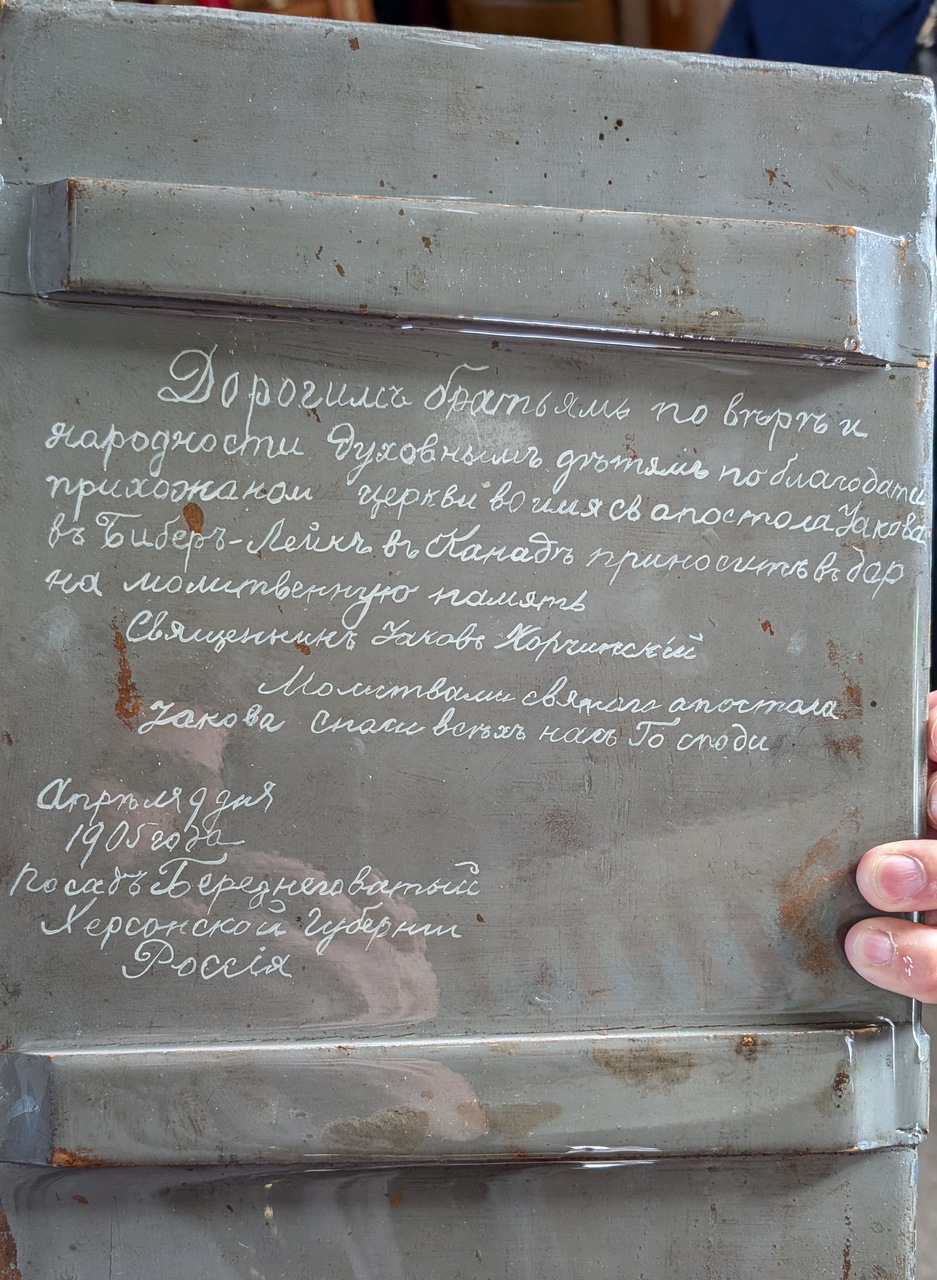 Дорогимъ братьямъ по вѣрѣ и
народности духовнымъ дѣтямъ по благодати
прихожаном церкви во имя св апостола Іакова
въ Биберъ-Лейкѣ въ Канадѣ приноситъ въ дар
на молитвенную память
Священникъ Іаковъ Корчинскій
Молитвами святаго апостола
Іакова спаси всѣхъ насъ Господи
Апрѣля 9 дня
1905 года
посадъ Береднеговатый
Херсонской Губернии
Россія